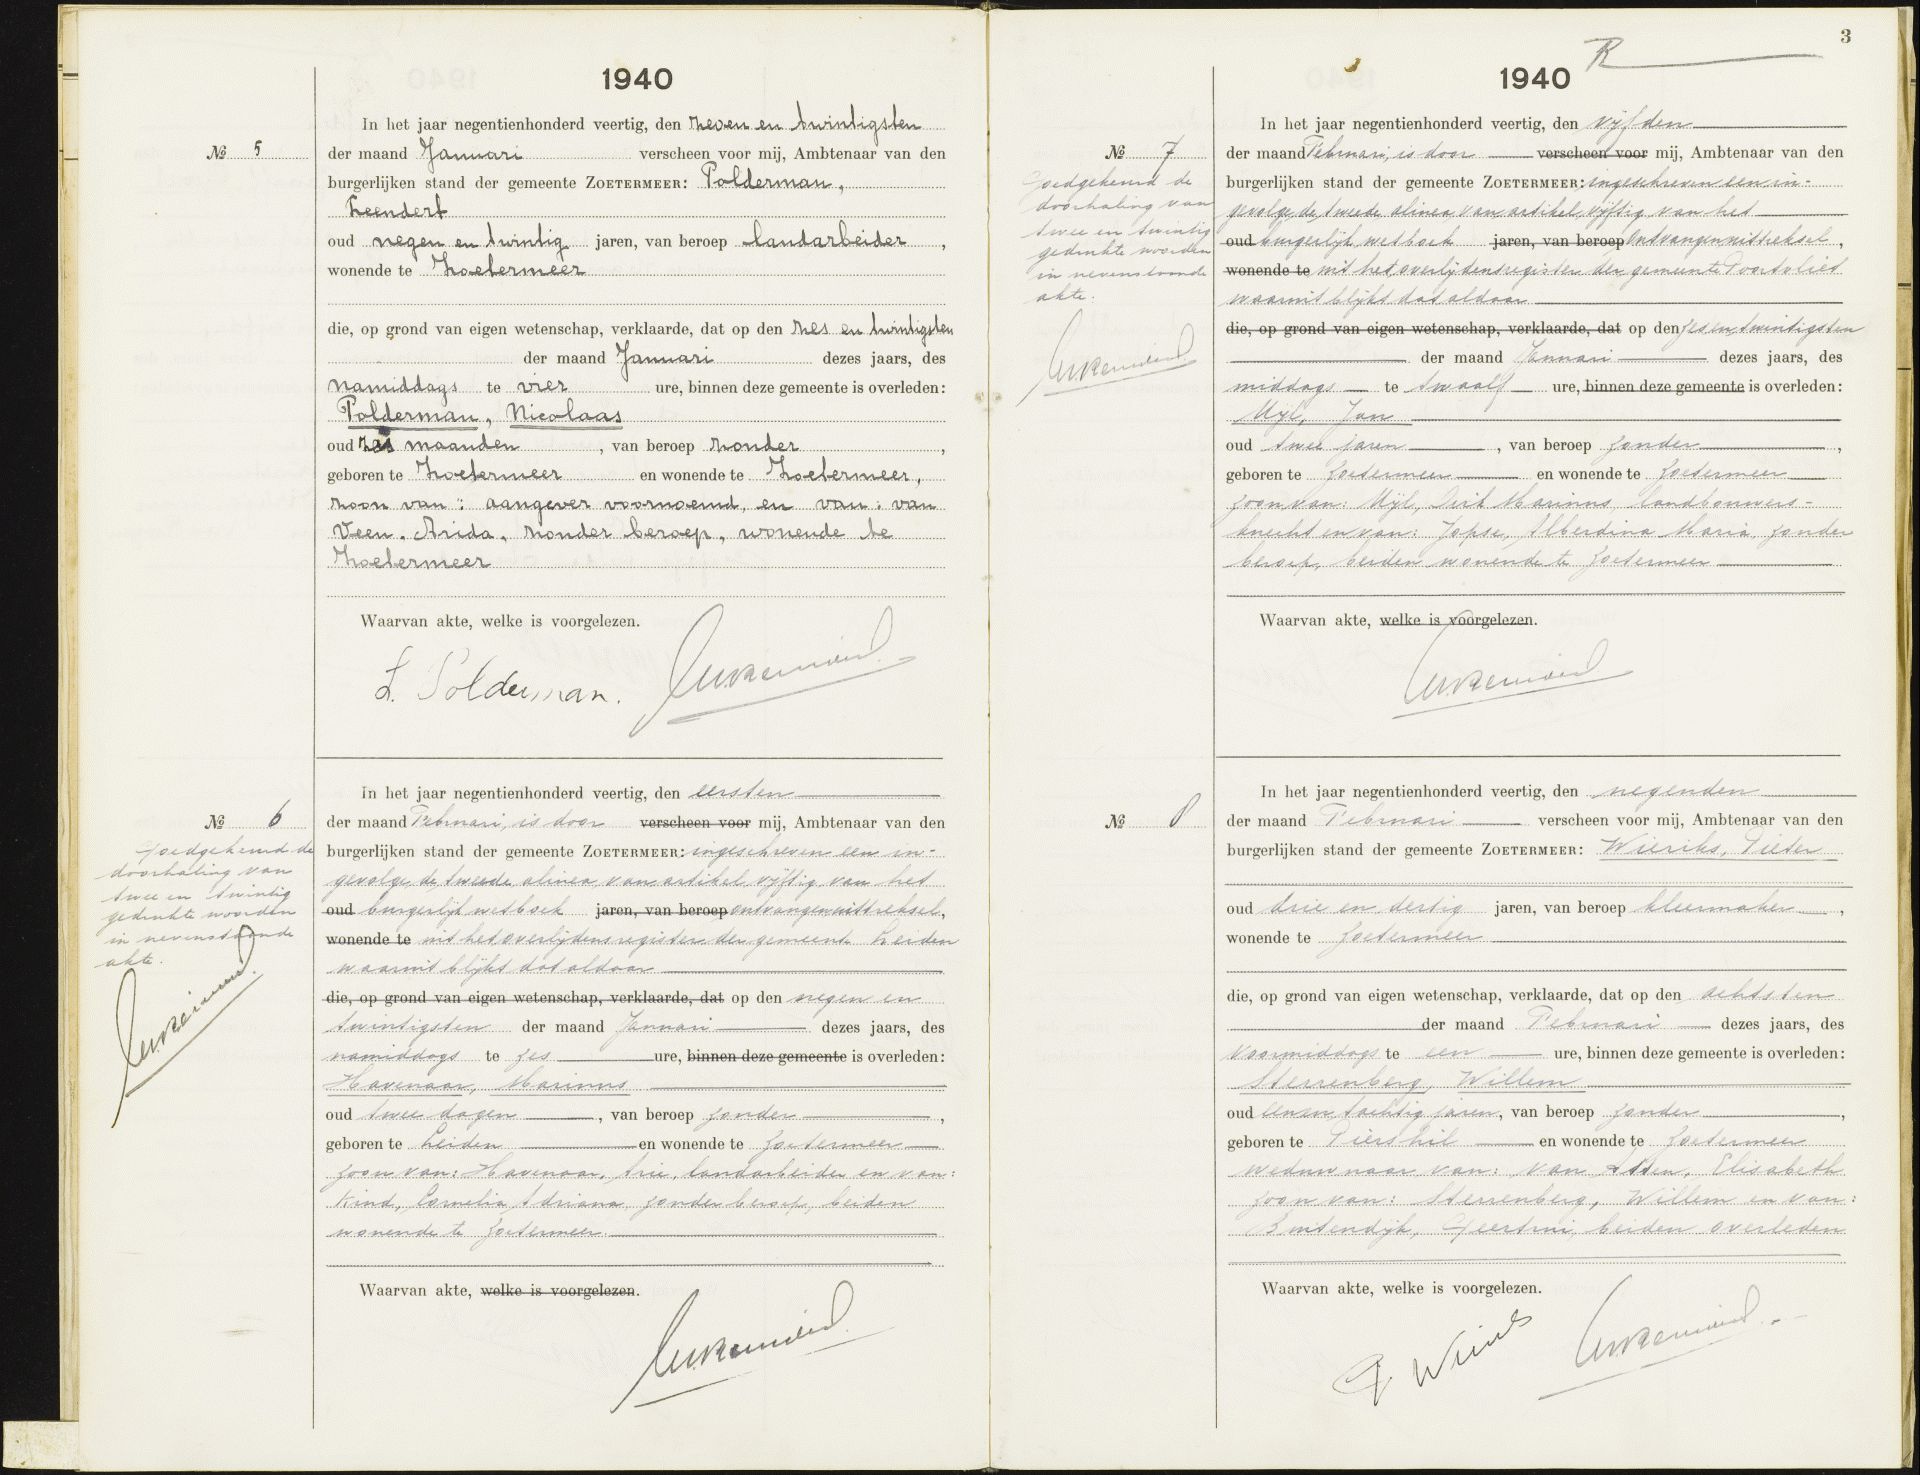 1940
No 5
In het jaar negentienhonderd veertig, den zeven en twintigsten
der maand Januari verscheen voor mij, Ambtenaar van den
burgerlijken stand der gemeente ZOETERMEER: Polderman,
Leendert
oud negen en twintig jaren, van beroep landarbeider,
wonende te Zoetermeer
die, op grond van eigen wetenschap, verklaarde, dat op den zes en twintigsten
der maand Januari dezes jaars, des
namiddags te vier ure, binnen deze gemeente is overleden:
Polderman, Nicolaas
oud zes maanden, van beroep zonder,
geboren te Zoetermeer en wonende te Zoetermeer,
zoon van: aangever voornoemd, en van: van
Veen, Arida, zonder beroep, wonende te
Zoetermeer
Waarvan akte, welke is voorgelezen.
L. Polderman.
No 6
Goedgekeurd de
doorhaling van
twee en twintig
gedrukte woorden
in nevenstaande
akte.
In het jaar negentienhonderd veertig, den eersten
der maand Februari, is door verscheen voor mij, Ambtenaar van den
burgerlijken stand der gemeente ZOETERMEER: ingeschreven een in-
gevolge de tweede alinea van artikel vijftig van het
oud burgerlijk wetboek jaren, van beroep ontvangen uittreksel,
wonende te uit het overlijdensregister der gemeente Leiden
waaruit blijkt dat aldaar
die, op grond van eigen wetenschap, verklaarde, dat op den negen en
twintigsten der maand Januari dezes jaars, des
namiddags te zes ure, binnen deze gemeente is overleden:
Havenaar, Marinus
oud twee dagen, van beroep zonder,
geboren te Leiden en wonende te Zoetermeer
zoon van: Havenaar, Arie, landarbeider en van:
Kind, Cornelia Adriana, zonder beroep, beiden
wonende te Zoetermeer.
Waarvan akte, welke is voorgelezen.
3
R
1940
No 7
Goedgekeurd de
doorhaling van
twee en twintig
gedrukte woorden
in nevenstaande
akte.
In het jaar negentienhonderd veertig, den vijfden
der maand Februari, is door verscheen voor mij, Ambtenaar van den
burgerlijken stand der gemeente ZOETERMEER: ingeschreven een in-
gevolge de tweede alinea van artikel vijftig van het
oud burgerlijk wetboek jaren, van beroep ontvangen uittreksel,
wonende te uit het overlijdensregister der gemeente Poortvliet
waaruit blijkt dat aldaar
die, op grond van eigen wetenschap, verklaarde, dat op den zes en twintigsten
der maand Januari dezes jaars, des
middags te twaalf ure, binnen deze gemeente is overleden:
Uijl, Jan
oud twee jaren, van beroep zonder,
geboren te Zoetermeer en wonende te Zoetermeer
zoon van: Uijl, Dirk Marinus, landbouwers-
knecht en van: Jopse, Alberdina Maria, zonder
beroep, beiden wonende te Zoetermeer
Waarvan akte, welke is voorgelezen.
No 8
In het jaar negentienhonderd veertig, den negenden
der maand Februari verscheen voor mij, Ambtenaar van den
burgerlijken stand der gemeente ZOETERMEER: Wieriks, Pieter
oud drie en dertig jaren, van beroep kleermaker,
wonende te Zoetermeer
die, op grond van eigen wetenschap, verklaarde, dat op den achtsten
der maand Februari dezes jaars, des
voormiddags te een ure, binnen deze gemeente is overleden:
Sterrenberg, Willem
oud een en tachtig jaren, van beroep zonder,
geboren te Piershil en wonende te Zoetermeer
weduwnaar van: van Elisabeth
zoon van: Sterrenberg, Willem en van:
Buitendijk, Geertrui, beiden overleden
Waarvan akte, welke is voorgelezen.